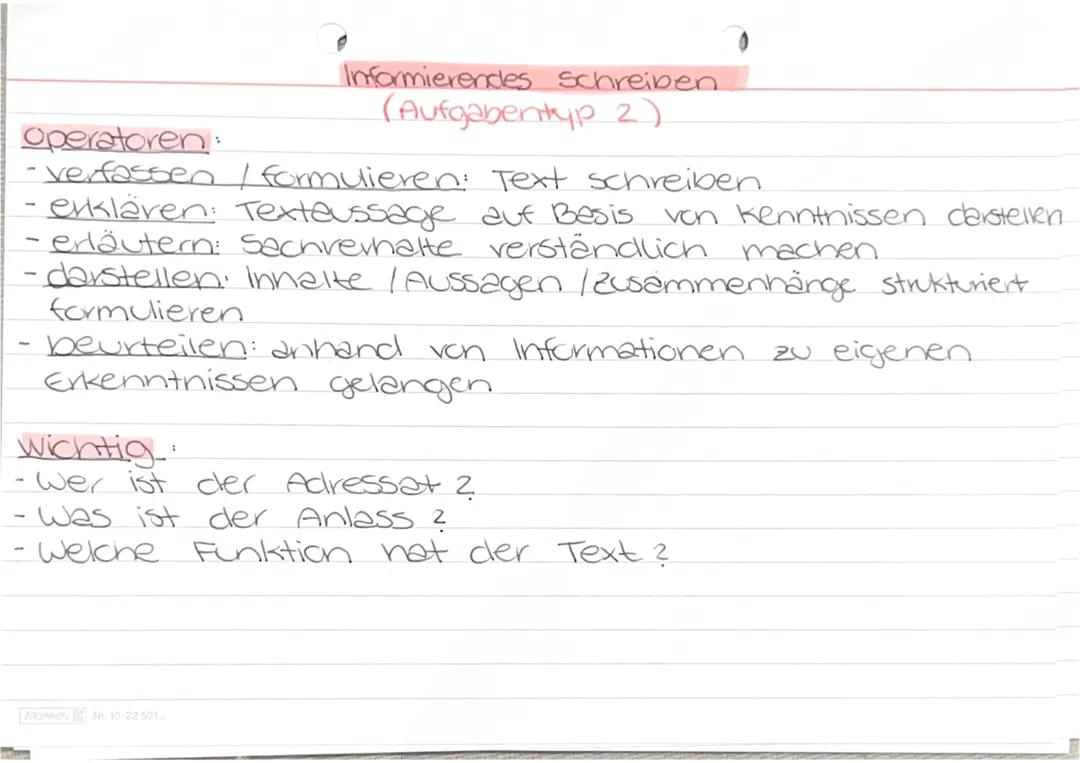 Informierendes Schreiben
(Aufgabentyp 2)
Operatoren:
- verfassen / formulieren: Text schreiben
- erklären: Textaussage auf Basis von Kenntnissen darstellen
- erläutern: Sachverhalte verständlich machen
- darstellen: Inhalte / Aussagen / Zusammenhänge strukturiert
formulieren
- beurteilen: anhand von Informationen zu eigenen
Erkenntnissen gelangen
Wichtig:
- Wer ist der Adressat?
- Was ist der Anlass?
- Welche Funktion hat der Text?
BRUNNEN Nr. 10-22 501..